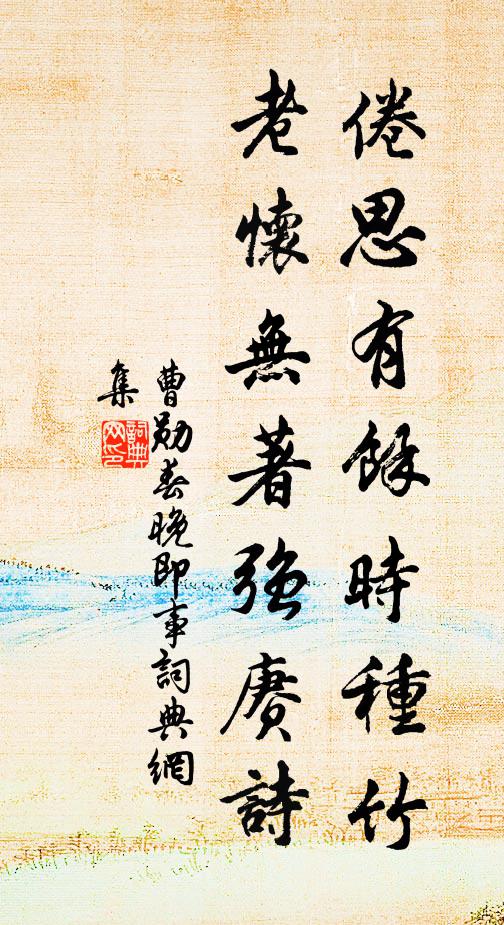 倦思有餘時種竹
老懷無著強賡詩
曹勛春晚即事詞典網
集
詞典網印